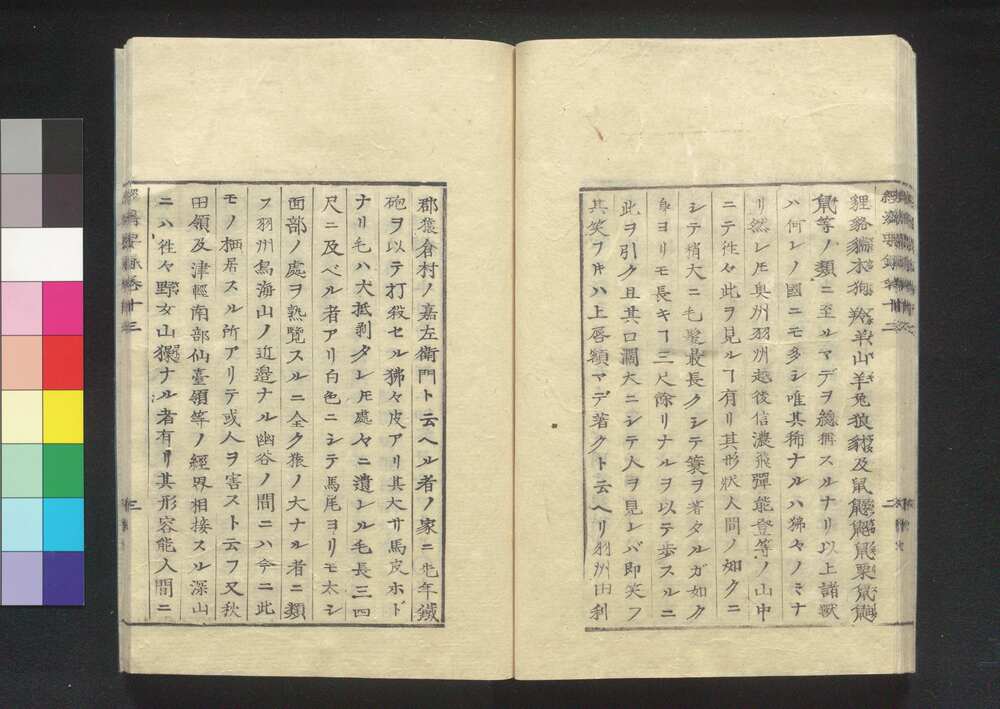 經濟要錄卷十三
狸貉貓木狗羚羊山羊兔狼豺及鼠
鼠等ノ類ニ至ルマデヲ總稱スルナリ以上諸獸
ハ何レノ國ニモ多シ唯其稀ナルハ狒々ノミナ
リ然レ𪜈奥州羽州越後信濃飛彈能登等ノ山中
ニテ徃々此ヲ見ルヿ有リ其形狀人間ノ如クニ
シテ稍大ニ毛髪最長クシテ蓑ヲ著タルガ如ク
身ヨリモ長キヿ三尺餘リナルヲ以テ歩スルニ
此ヲ引ク且其口濶大ニシテ人ヲ見レバ即笑フ
其笑フ𪜈ハ上唇額マデ著クト云ヘリ羽州由利
二
郡獲倉村ノ嘉左衞門ト云ヘル者ノ家ニ先年鐵
砲ヲ以テ打殺セル狒々皮アリ其大サ馬皮ホド
ナリ毛ハ大抵剥タレ𪜈處々ニ遺レル毛長三四
尺ニ及ベル者アリ白色ニシテ馬尾ヨリモ太シ
面部ノ處ヲ熟覽スルニ全ク猿ノ大ナル者ニ類
フ羽州鳥海山ノ近邉ナル幽谷ノ間ニハ今ニ此
モノ栖居スル所アリテ或人ヲ害スト云フ又秋
田領及津輕南部仙臺領等ノ經界相接スル深山
ニハ徃々野女山玃ナル者有リ其形容能人間ニ
經濟要錄卷十三
三